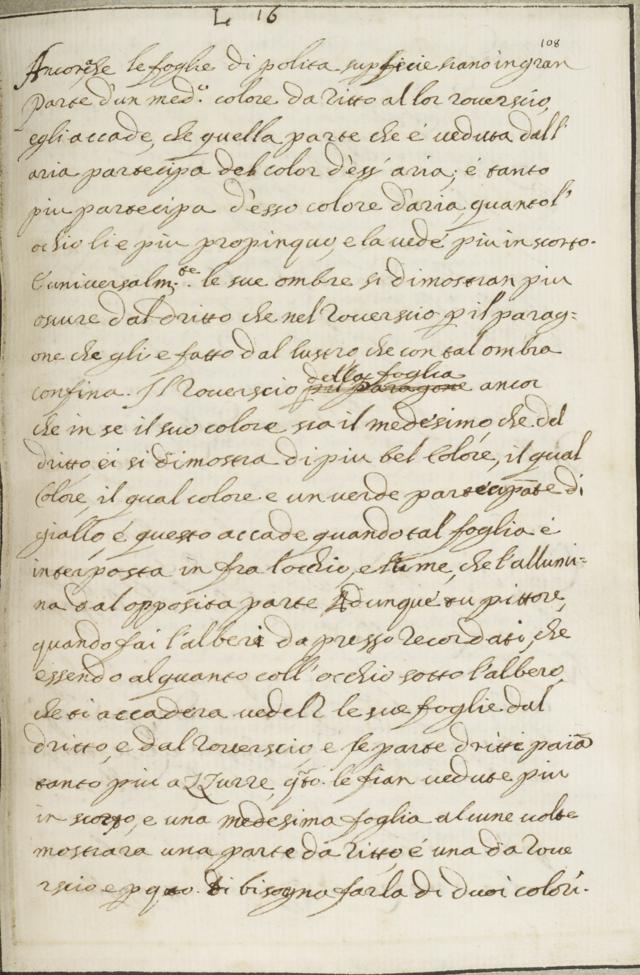 L 16
108
Ancorche le foglie di polita supficie siano in gran
parte d'un med.º colore da ritto al lor roverscio,
egli accade, che quella parte che é veduta dall'
aria partecipa del color d'ess'aria; é tanto
piu partecipa d'esso colore d'aria, quanto l'
ochio li e piu propinquo, e la vede piu in scorto.
E universalm.te le sue ombre si dimostran piu
oscure dal dritto che nel roverscio p il parag=
one che gli e fatto dal lustro, che con tal ombra
confina. Il Roverscio della foglia ancor
che in se il suo colore sia il medesimo, che del
dritto ei si dimostra di piu bel Colore, il qual
Colore il qual colore e un verde partecipāte di
giallo é questo accade quando tal foglia é
interposta in fra l'occhio, e lume, che l'allumi=
na dal opposita parte Adunque tu pittore,
quando fai l'alberi da presso recordati, che
essendo alquanto coll'occhio sotto l'albero,
che ti accadera vedell le sue foglie dal
dritto, e dal roverscio e le parte dritte paiā
tanto piu azzurre, qto. le fian vedute piu
in scorto, e una medesima foglia alcune volte
mostrara una parte da ritto é una da rove
rscio e p qto. ti bisogna farla di duoi colori.